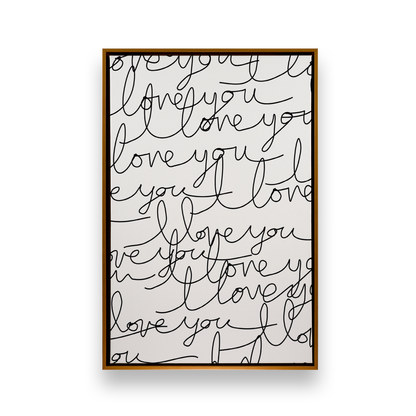 ove you I lo
love you
I love you
love you I
e you I love
I love you
ove you I love yo
I love y
love you I lo
ou